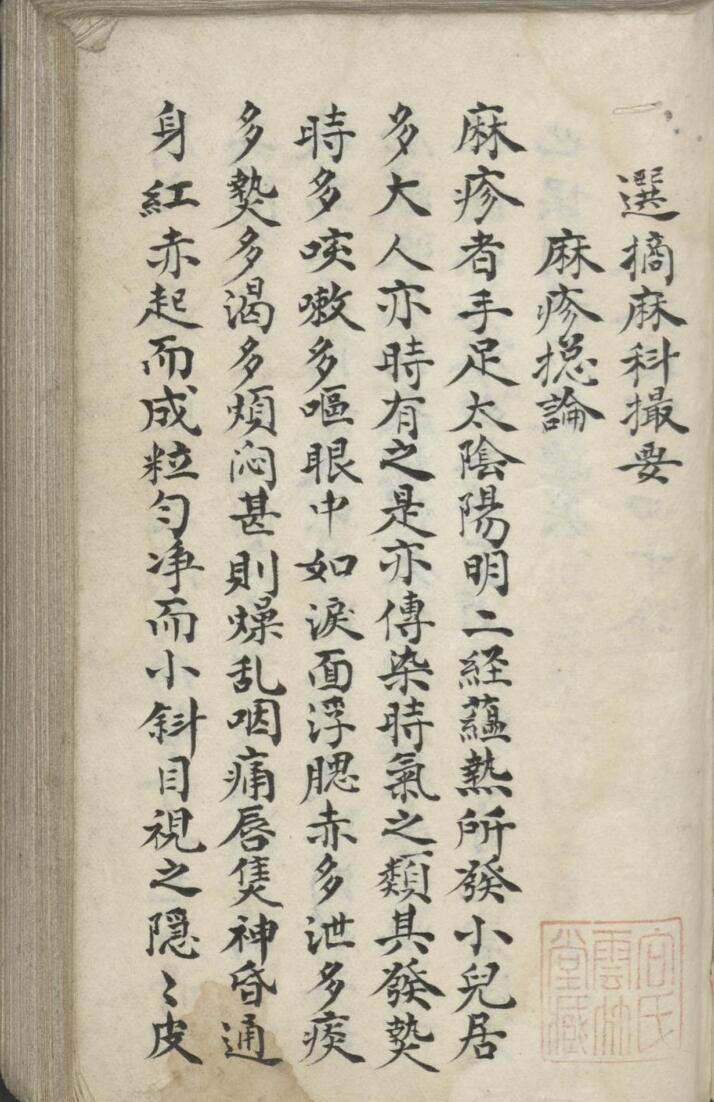 選摘麻科撮要
麻疹捴論
麻疹者手足太陰陽明二経蘊热所發小兒居
多大人亦時有之是亦傳染時氣之類其發𤍠
時多咳嗽多嘔眼中如淚面浮腮赤多泄多痰
多𤍠多渴多煩悶甚則燥乱咽痛唇焦神昏通
身紅赤起而成粒匀净而小斜目視之隠〻皮
宮氏
雲林
堂藏